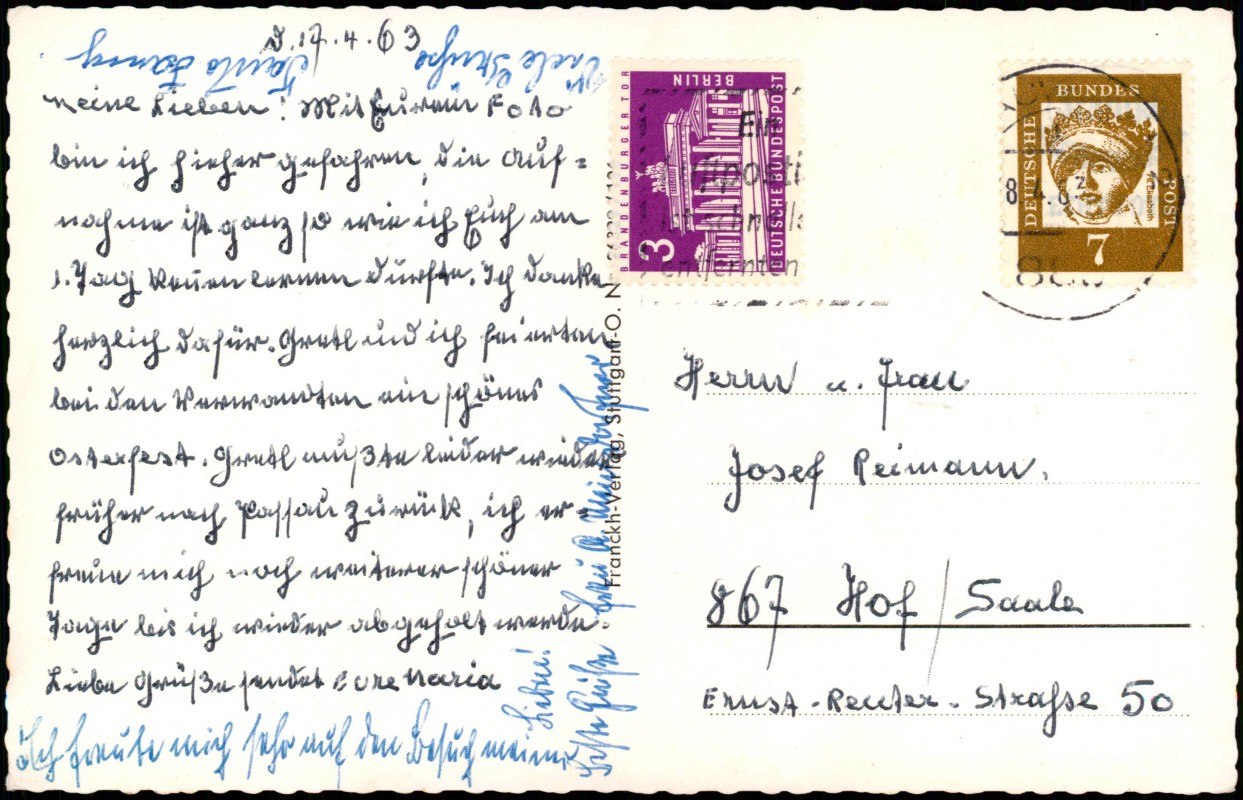 d. 17.4.63
Meine Lieben! Mit Eurem Foto
bin ich hieher gefahren, die Auf=
nahme ist ganz so wie ich Euch am
1. Tag kennenlernen durfte. Ich danke
herzlich dafür. Gretl und ich feierten
bei den Verwandten ein schönes
Osterfest. Gretl mußte leider wieder
früher nach Passau zurück, ich er-
freue mich noch weiterer schöner
Tage bis ich wieder abgeholt werde.
Liebe Grüße sendet Eure Maria
Ich freute mich sehr auf den Besuch meiner
Lieben!
Beste Grüße Frau A.
Viele Grüße
Tante Fanny
Franckh-Verlag, Stuttgart-O. N
BERLIN
BRANDENBURGER TOR
DEUTSCHE BUNDESPOST
3
Ein
ftposti
ist schnells
entfernten
DEUTSCHE
BUNDES
POST
Hl. Elisabeth
7
8.4.63
Herrn u. Frau
Josef Reimann.
867 Hof/Saale
Ernst-Reuter-Straße 50